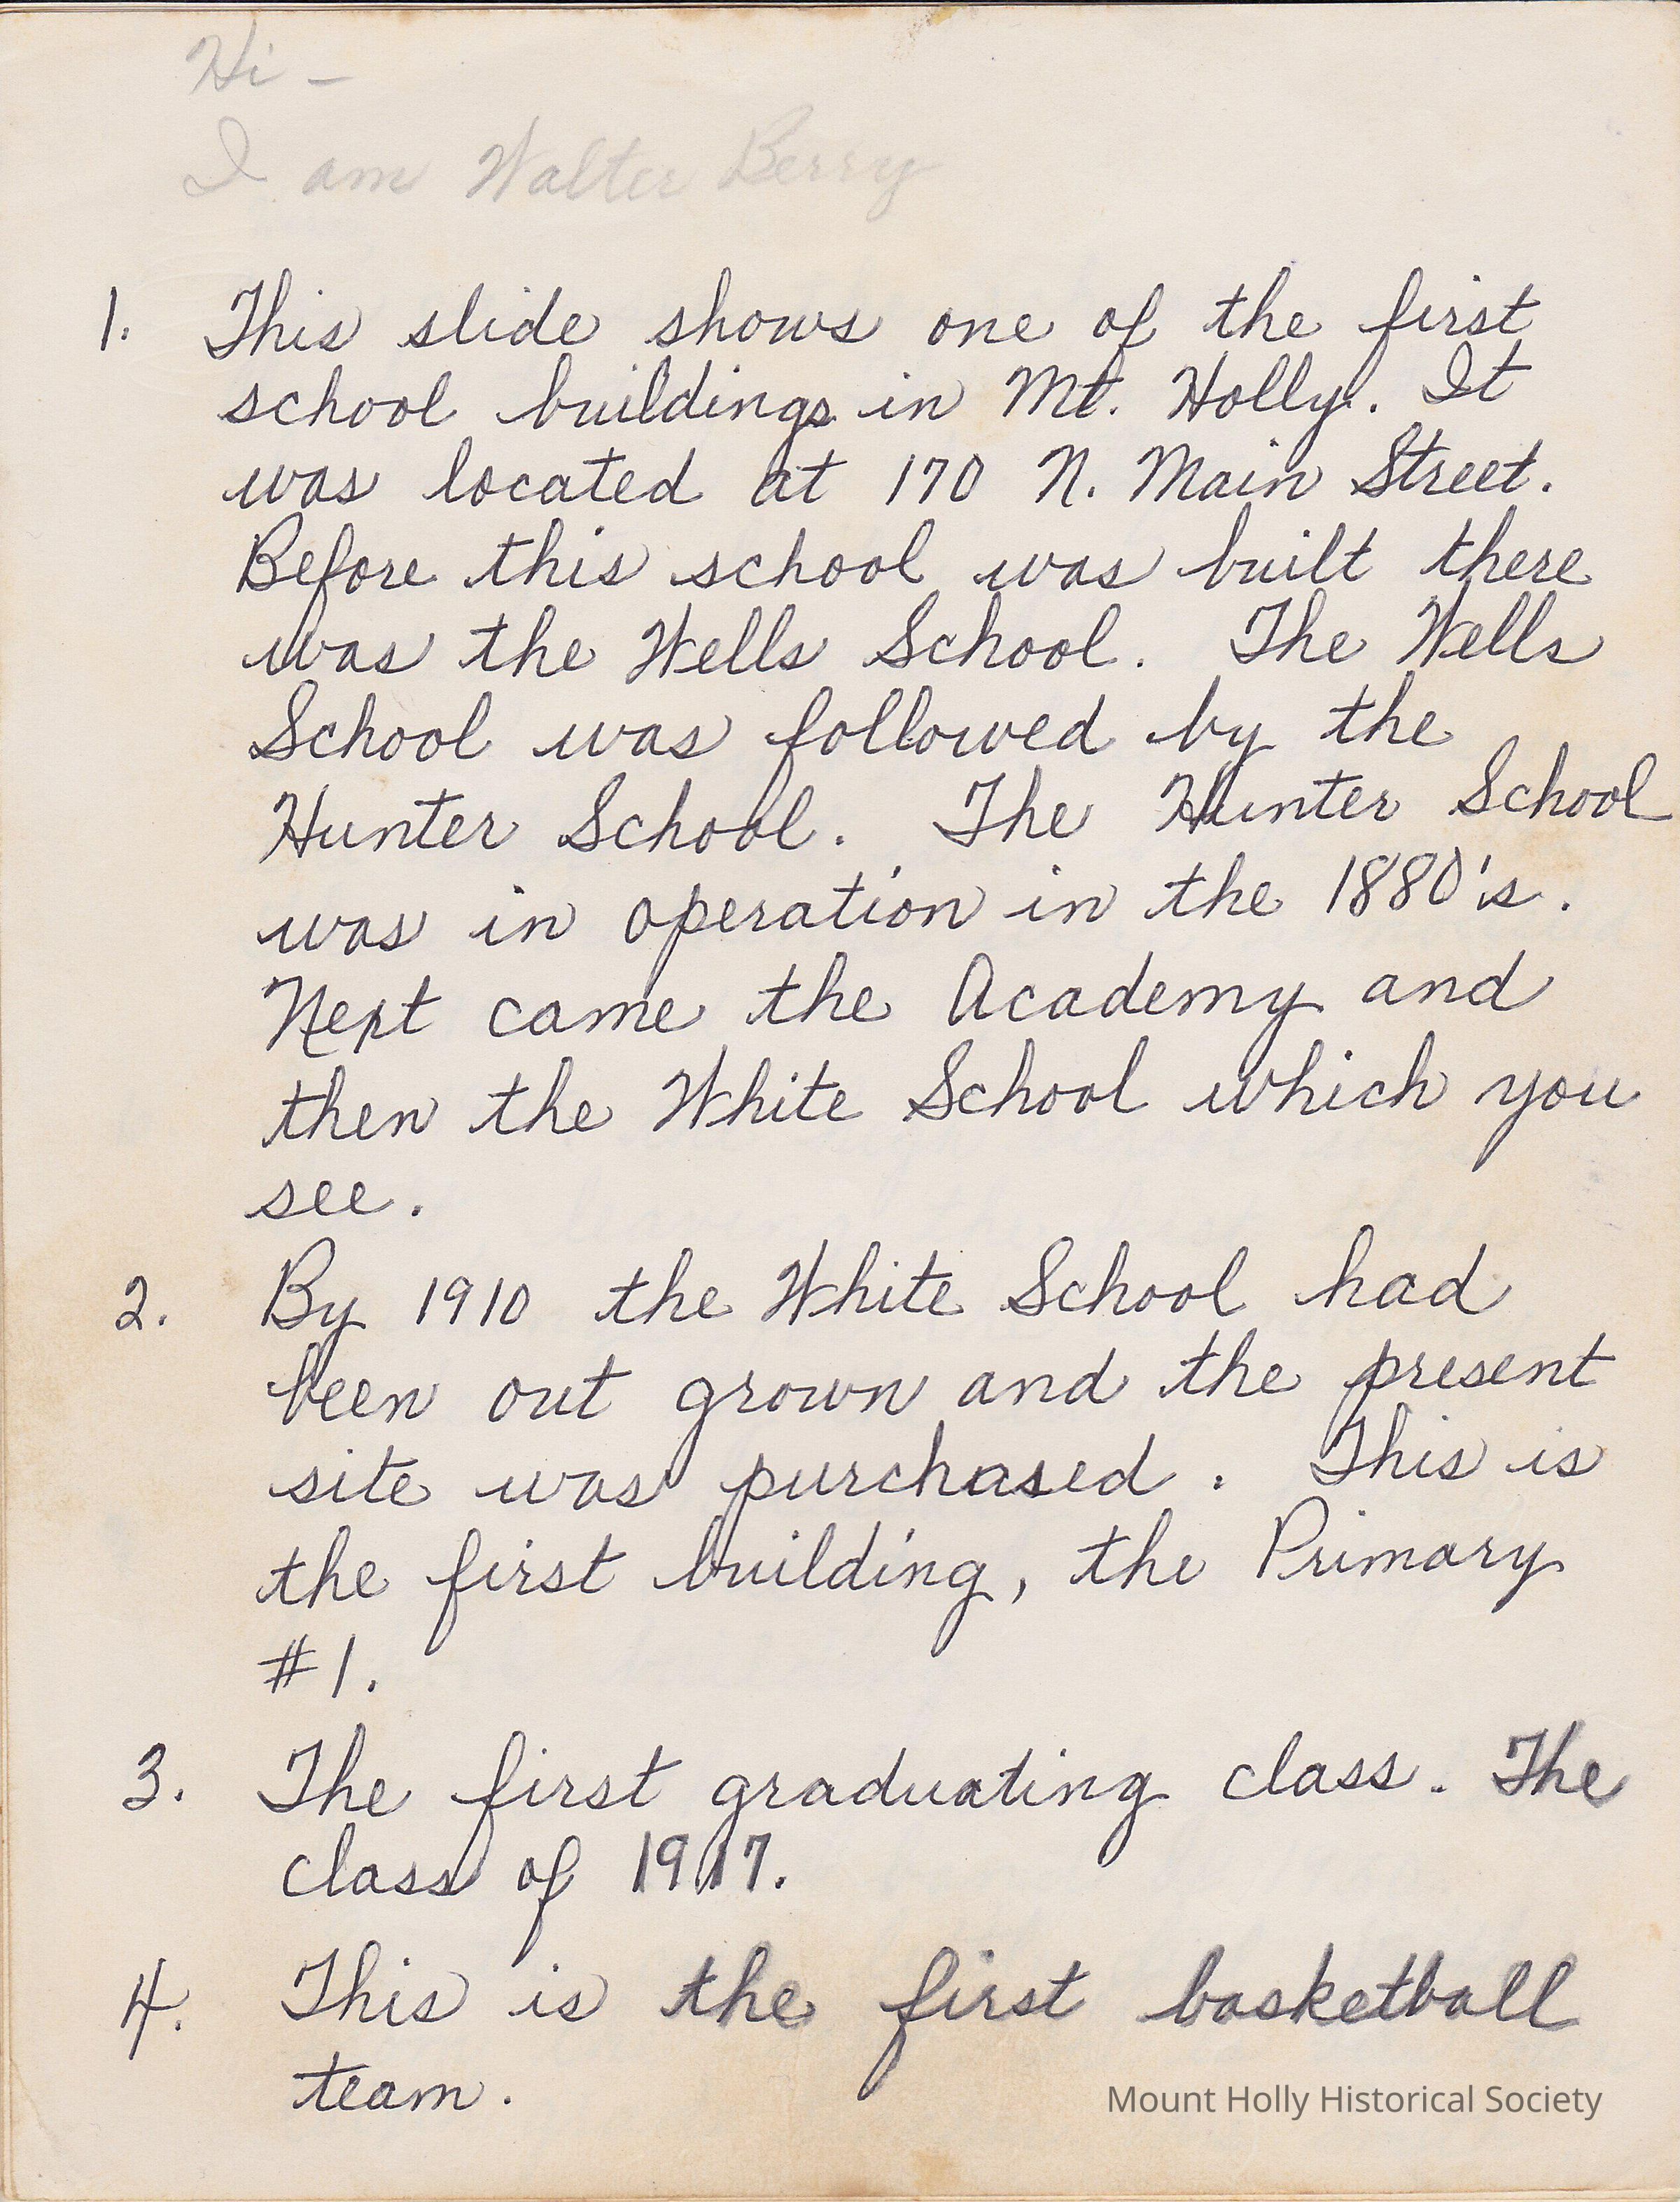 Hi -
I am Walter Berry
1. This slide shows one of the first
school buildings in Mt. Holly. It
was located at 170 N. Main Street.
Before this school was built there
was the Wells School. The Wells
School was followed by the
Hunter School. The Hunter School
was in operation in the 1880's.
Next came the Academy and
then the White School which you
see.
2. By 1910 the White School had
been out grown and the present
site was purchased. This is
the first building, the Primary
#1.
3. The first graduating class. The
class of 1917.
4. This is the first basketball
team.
Mount Holly Historical Society